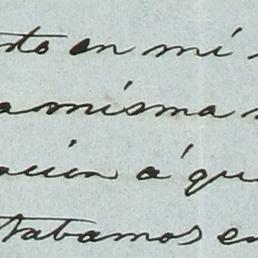 nto en mí
a misma
ación á qu
ntrabamos en